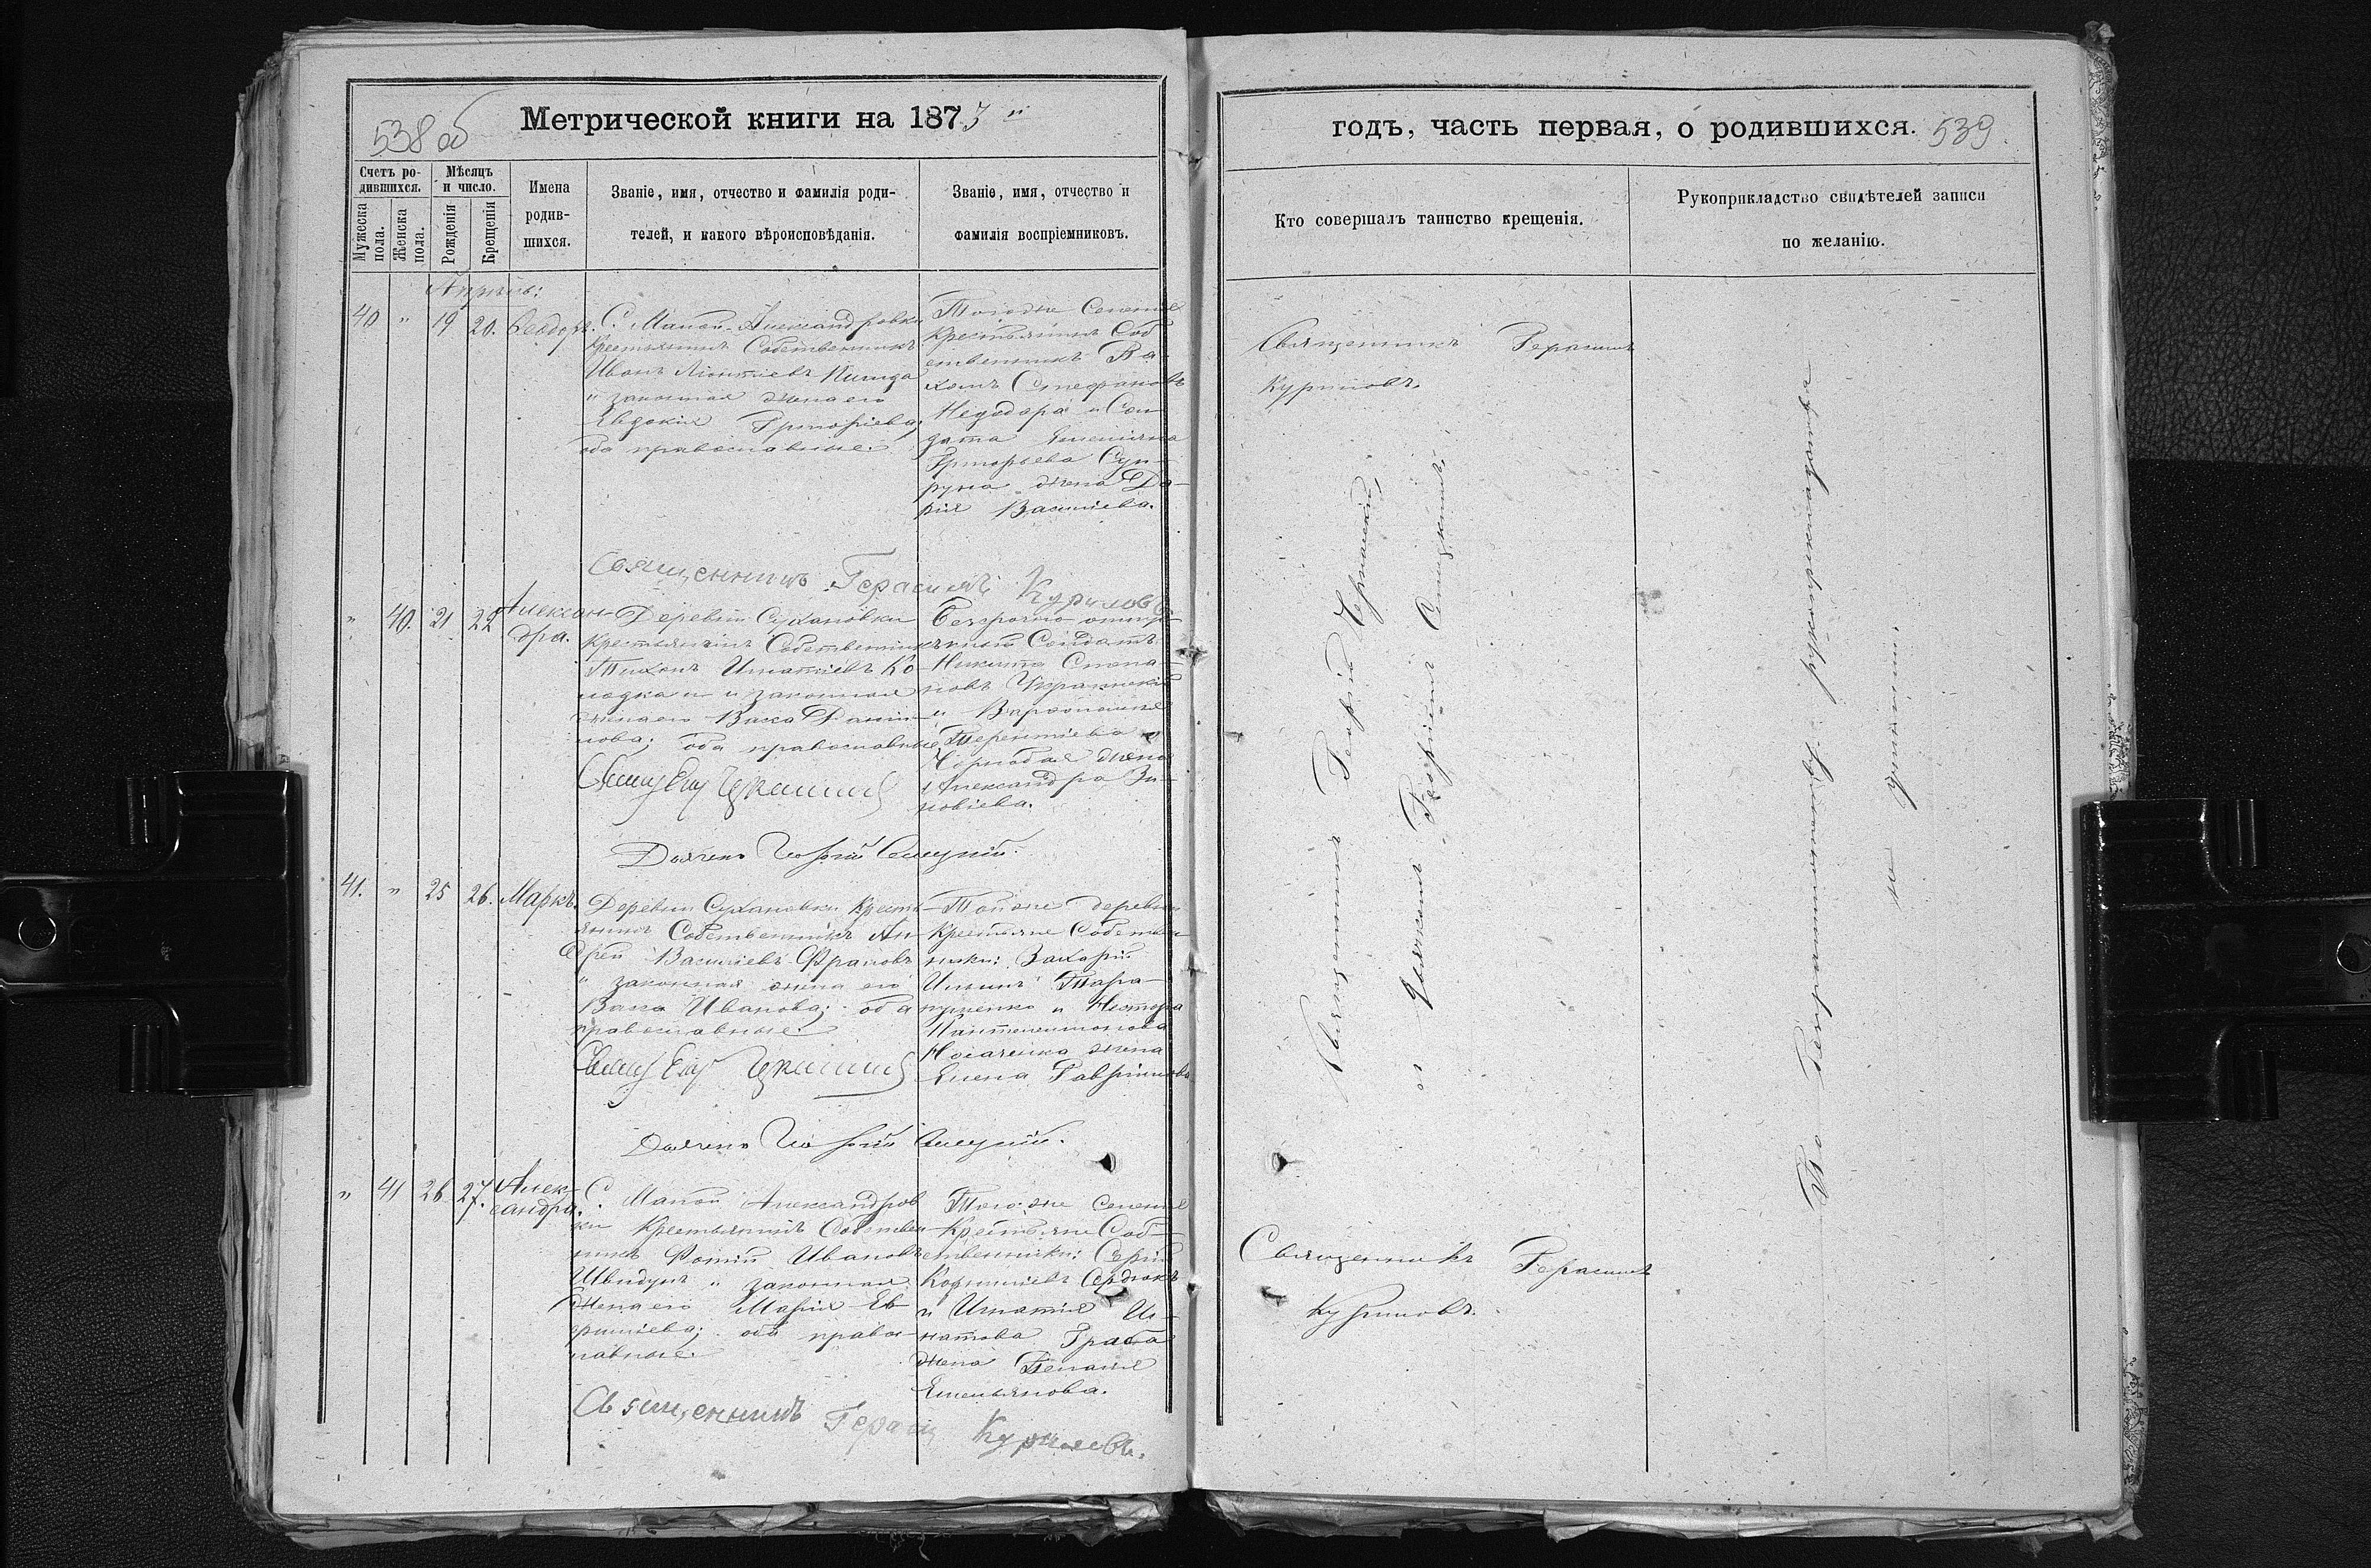 538 об
Метрической книги на 1873 й
Счетъ ро-
дившихся.
Мужеска пола.
Женска пола.
Мѣсяцъ
и число.
Рожденія
Крещенія
Имена
родив-
шихся.
Званіе, имя, отчество и фамилія роди-
телей, и какого вѣроисповѣданія.
Званіе, имя, отчество и
фамилія воспріемниковъ.
Апрѣль:
40 " 19 20. Ѳеодоръ.
С. Малой-Александровки
Крестьянинъ Собственникъ
Иванъ
и законная жена его
Евдокія Григоріева;
оба православные.
Тогоже Селенія
Крестьянинъ Соб
ственникъ
Стефановъ
и Сол
дата Емельяна
Григорьева Суп-
руна жена Да-
рія Васильева.
Священникъ Герасимъ Куриловъ
" 40. 21 22 Алексан-
дра.
Деревни Сухановки
Крестьянинъ Собственникъ
Тихонъ Игнатіевъ Ко-
лодка и законная
жена его Васса Данил-
лова; оба православные
Безсрочно отпу-
кной Солдатъ
Никита Степа-
новъ Украинскій
и Варѳоломея
Терентіева
жена
Александра Зи-
новіева.
41. " 25 26. Маркъ.
Деревни Сухановки Кресть-
янинъ Собственникъ Ан-
дрей Василіевъ
и законная жена его
Васса Иванова; оба
православные.
Той же деревни
Крестьяне Собствен
ники: Захарій
Тара-
нушенко и Нестора
Пантелеимонова
Носаченка жена
Елена Гавріилова
" 41 26 27. Алек-
сандра.
С. Малой Александров
ки Крестьянинъ Собствен-
никъ Фотій Ивановъ
Швидунъ и законная
жена его Марія Ев-
оба право-
лавные.
Тогоже селенія
Крестьяне Соб-
ственники: Сергій
Корниліевъ Сердюкъ
и Игнатія Иг-
натова Граба
жена Пелагія
Емельянова.
Священникъ Герасим Куриловъ.
годъ, часть первая, о родившихся. 539.
Кто совершалъ таинство крещенія.
Рукоприкладство свидѣтелей записи
по желанію.
Священникъ Герасимъ
Куриловъ.
Священникъ Георгій
и Дьяконъ
По безграмотству рукоприкладства
не учинили.
Священникъ Герасимъ
Куриловъ.